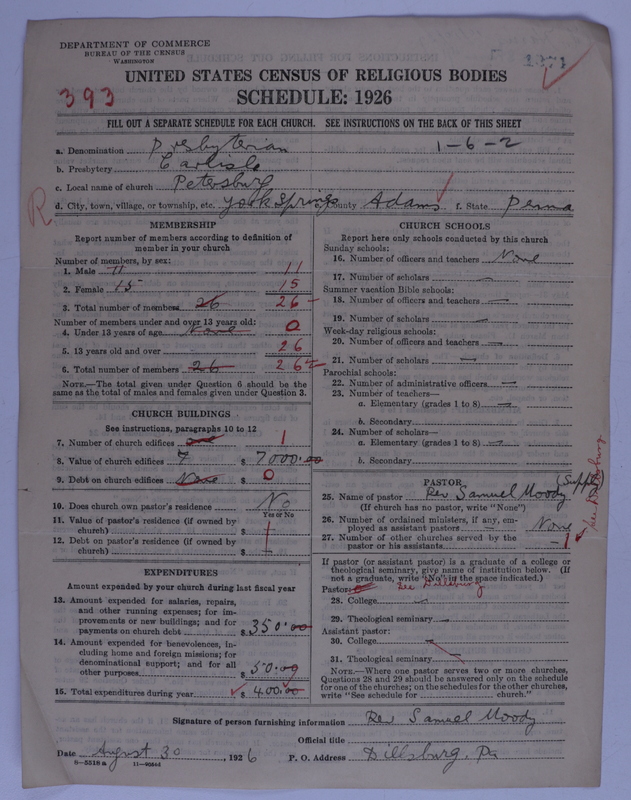 DEPARTMENT OF COMMERCE
BUREAU OF THE CENSUS
WASHINGTON
UNITED STATES CENSUS OF RELIGIOUS BODIES
393
SCHEDULE: 1926
FILL OUT A SEPARATE SCHEDULE FOR EACH CHURCH. SEE INSTRUCTIONS ON THE BACK OF THIS SHEET
a. Denomination Presbyterian 1-6-2
b. Presbytery Carlisle
c. Local name of church Petersburg
R d. City, town, village, or township, etc. York Springs County Adams f. State Penna
MEMBERSHIP
Report number of members according to definition of
member in your church
Number of members, by sex:
1. Male 11 11
2. Female 15 15
3. Total number of members 26 26
Number of members under and over 13 years old:
4. Under 13 years of age None 0
5. 13 years old and over 26
6. Total number of members 26 26
NOTE.—The total given under Question 6 should be the
same as the total of males and females given under Question 3.
CHURCH BUILDINGS
See instructions, paragraphs 10 to 12
7. Number of church edifices one 1
8. Value of church edifices $ 7000.00
9. Debt on church edifices None $ 0
10. Does church own pastor's residence No
Yes or No
11. Value of pastor's residence (if owned by
church) $
12. Debt on pastor's residence (if owned by
church) $
EXPENDITURES
Amount expended by your church during last fiscal year
13. Amount expended for salaries, repairs,
and other running expenses; for im-
provements or new buildings; and for
payments on church debt $ 350.00
14. Amount expended for benevolences, in-
cluding home and foreign missions; for
denominational support; and for all
other purposes $ 50.00
15. Total expenditures during year $ 400.00
CHURCH SCHOOLS
Report here only schools conducted by this church
Sunday schools:
16. Number of officers and teachers None
17. Number of scholars —
Summer vacation Bible schools:
18. Number of officers and teachers —
19. Number of scholars —
Week-day religious schools:
20. Number of officers and teachers —
21. Number of scholars —
Parochial schools:
22. Number of administrative officers —
23. Number of teachers—
a. Elementary (grades 1 to 8) —
b. Secondary
24. Number of scholars—
a. Elementary (grades 1 to 8) —
b. Secondary
PASTOR (Supply)
25. Name of pastor Rev Samuel Moody
(If church has no pastor, write "None")
26. Number of ordained ministers, if any, em-
ployed as assistant pastors None
27. Number of other churches served by the
pastor or his assistants 1
See Dillsburg
If pastor (or assistant pastor) is a graduate of a college or
theological seminary, give name of institution below. (If
not a graduate, write "No" in the space indicated.)
Pastor: See Dillsburg
28. College
29. Theological seminary
Assistant pastor:
30. College
31. Theological seminary
NOTE.—Where one pastor serves two or more churches,
Questions 28 and 29 should be answered only on the schedule
for one of the churches; on the schedules for the other churches,
write "See schedule for church."
Signature of person furnishing information Rev Samuel Moody
Official title
Date August 30, 1926 P. O. Address Dillsburg, Pa
8-5318 a